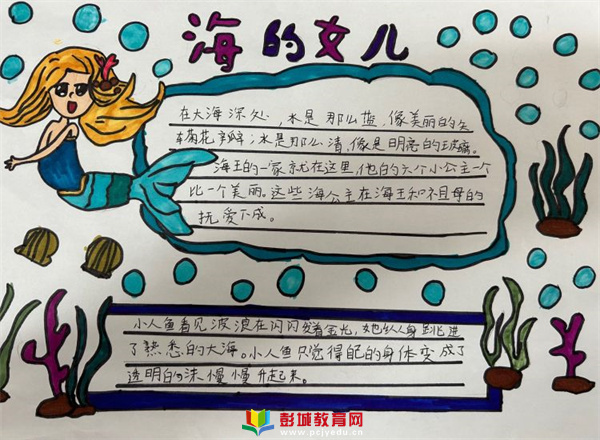 海的女儿
在大海深处，水是那么蓝，像美丽的矢
车菊花瓣；水是那么清，像是明亮的玻璃。
海王的一家就在这里，他的六个小公主一个
比一个美丽。这些海公主在海王和祖母的
抚爱下成。
小人鱼看见波浪在闪闪发着金光，她纵身跳进
了熟悉的大海。小人鱼只觉得自己的身体变成了
透明的沫慢慢升起来。
彭城教育网
www.pcjyedu.cn